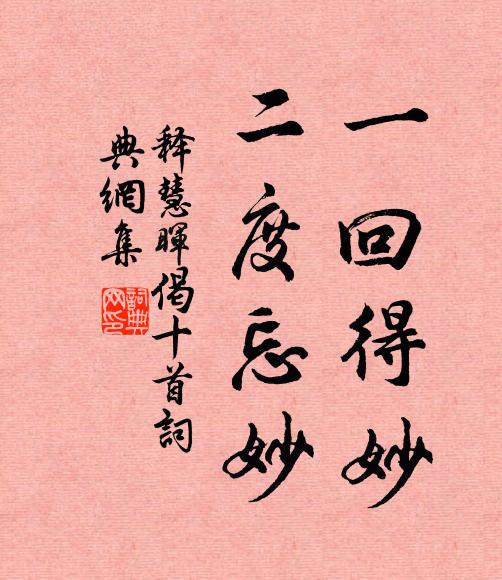 一回得妙
二度忘妙
释慧暉偈十首詞
典網集
詞典网印